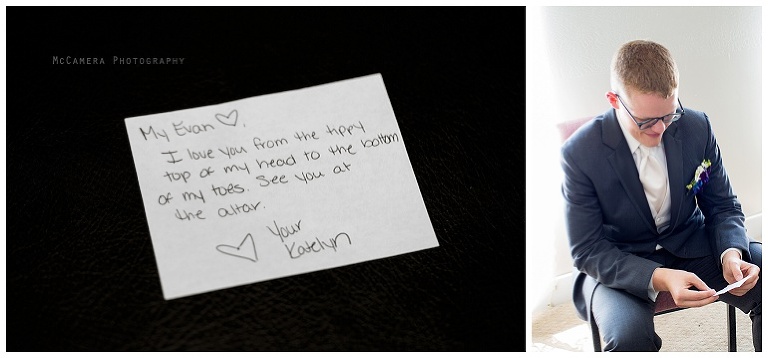 McCamera Photography
My Evan ♡,
I love you from the tippy
top of my head to the bottom
of my toes. See you at
the altar.
Your
♡ Katelyn